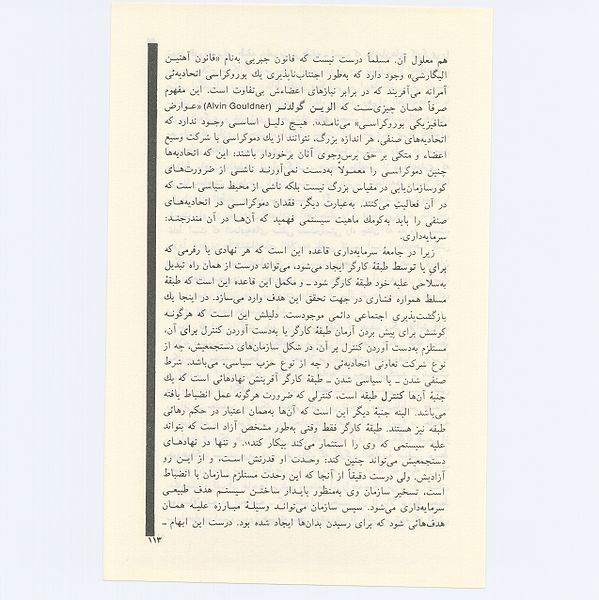 هم معلول آن. مسلماً درست نیست که قانون جبریی به‌نام «قانون آهنین
الیگارشی» وجود دارد که به‌طور اجتناب‌ناپذیری یك بوروکراسی اتحادیه‌ئی
آمرانه می‌آفریند که در برابر نیازهای اعضاءش بی‌تفاوت است. این مفهوم
صرفاً همان چیزی‌ست که الوین گولدنر (Alvin Gouldner) «عوارض
متافیزیکی بوروکراسی» می‌نامد. هیچ دلیل اساسی وجود ندارد که
اتحادیه‌های صنفی، هر اندازه بزرگ، نتوانند از یك دموکراسی با شرکت وسیع
اعضاء و متکی بر حق پرس‌وجوی آنان برخوردار باشند: این که اتحادیه‌ها
چنین دموکراسی را معمولاً به‌دست نمی‌آورند ناشی از ضرورت‌های
کورسازمان‌یابی در مقیاس بزرگ نیست بلکه ناشی از محیط سیاسی است که
در آن فعالیت می‌کنند. به‌عبارت دیگر، فقدان دموکراسی در اتحادیه‌های
صنفی را باید به‌کومك ماهیت سیستمی فهمید که آن‌ها در آن مندرجند:
سرمایه‌داری.
زیرا در جامعهٔ سرمایه‌داری قاعده این است که هر نهادی یا رفرمی که
برای یا توسط طبقهٔ کارگر ایجاد می‌شود، می‌تواند درست از همان راه تبدیل
به‌سلاحی علیه خود طبقهٔ کارگر شود ـ و مکمل این قاعده این است که طبقهٔ
مسلط همواره فشاری در جهت تحقق این هدف وارد می‌سازد. در اینجا یك
بازگشت‌پذیری اجتماعی دائمی موجودست. دلیلش این است که هرگونه
کوشش برای پیش بردن آرمان طبقهٔ کارگر یا به‌دست آوردن کنترل برای آن،
مستلزم به‌دست آوردن کنترل بر آن، در شکل سازمان‌های دستجمعیش، چه از
نوع شرکت تعاونی اتحادیه‌ئی و چه از نوع حزب سیاسی، می‌باشد. شرط
صنفی شدن ـ یا سیاسی شدن ـ طبقهٔ کارگر آفرینش نهادهائی است که یك
جنبهٔ آن‌ها کنترل طبقه است، کنترلی که ضرورت هرگونه عمل انضباط یافته
می‌باشد. البته جنبهٔ دیگر این است که آن‌ها به‌همان اعتبار در حکم رهائی
طبقه نیز هستند. طبقهٔ کارگر فقط وقتی به‌طور مشخص آزاد است که بتواند
علیه سیستمی که وی را استثمار می‌کند پیکار کند. و تنها در نهادهای
دستجمعیش می‌تواند چنین کند: وحدت او قدرتش است، و از این رو
آزادیش. ولی درست دقیقاً از آنجا که این وحدت مستلزم سازمان یا انضباط
است، تسخیر سازمان وی به‌منظور پایدار ساختن سیستم هدف طبیعی
سرمایه‌داری می‌شود. سپس سازمان می‌تواند وسیلهٔ مبارزه علیه همان
هدف‌هائی شود که برای رسیدن بدان‌ها ایجاد شده بود. درست این ابهام ـ
۱۱۳